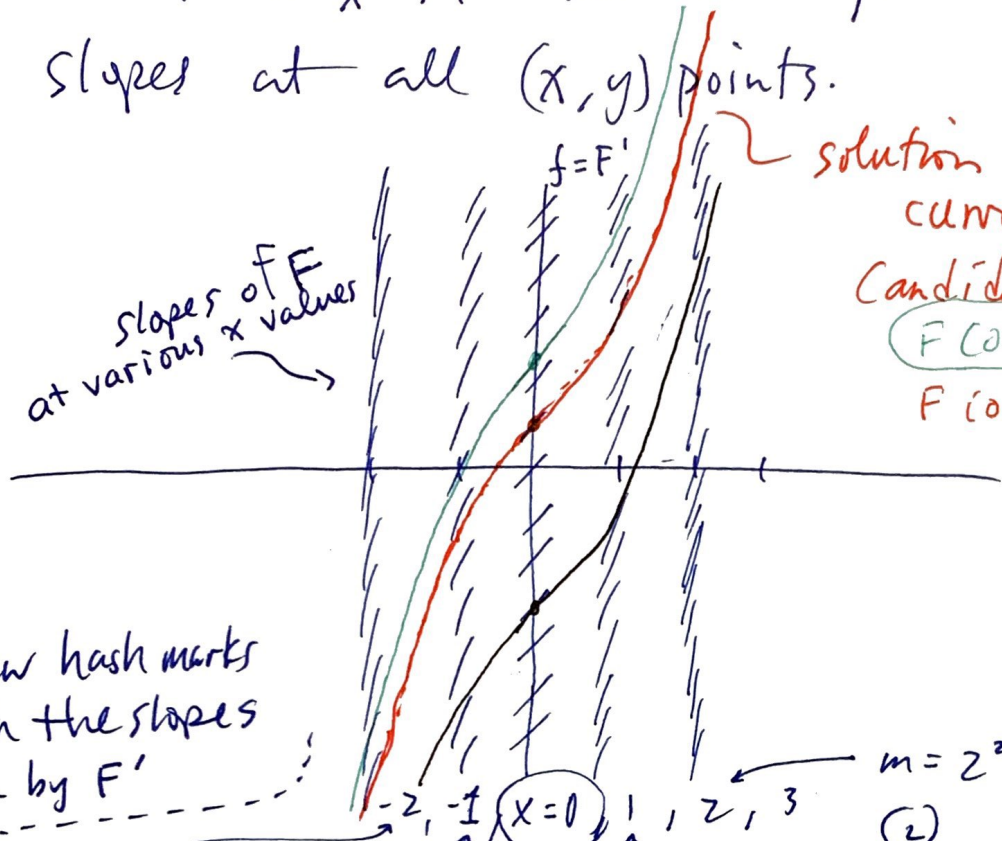 slopes at all (x, y) points.
f = F'
solution
Candid
slopes of F
at various x values
F
F
hash marks
the slopes
by F'
m = 2
-2, -1, x = 0, 1, 2, 3
(2)